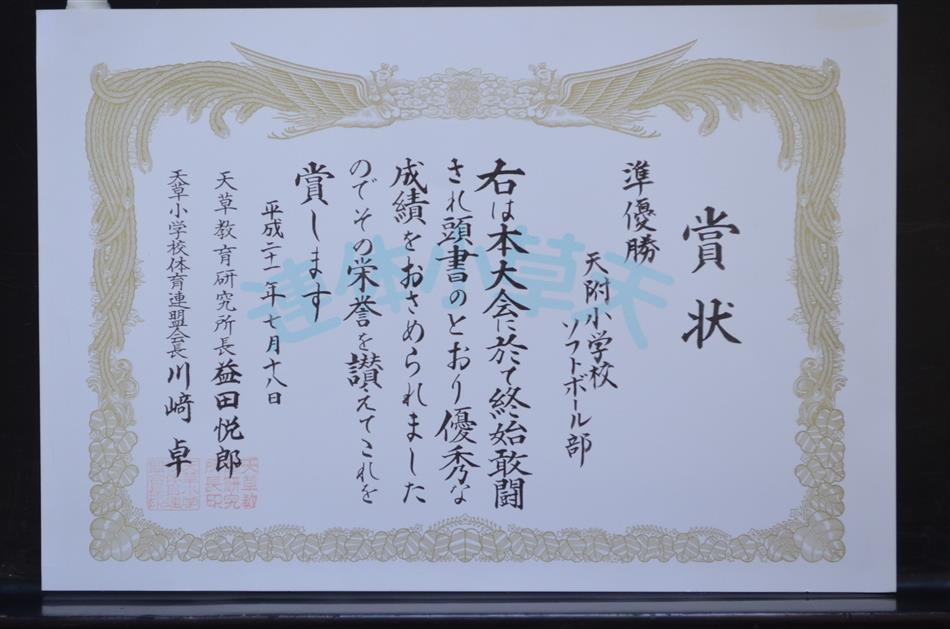 賞状
準優勝
天附小学校
ソフトボール部
右は本大会に於て終始敢闘
され頭書のとおり優秀な
成績をおさめられました
のでその栄誉を讃えてこれを
賞します
平成二十一年七月十八日
天草教育研究所長 益田悦郎
天草小学校体育連盟会長 川﨑 卓
天草小体連
天草教
研究
所長印